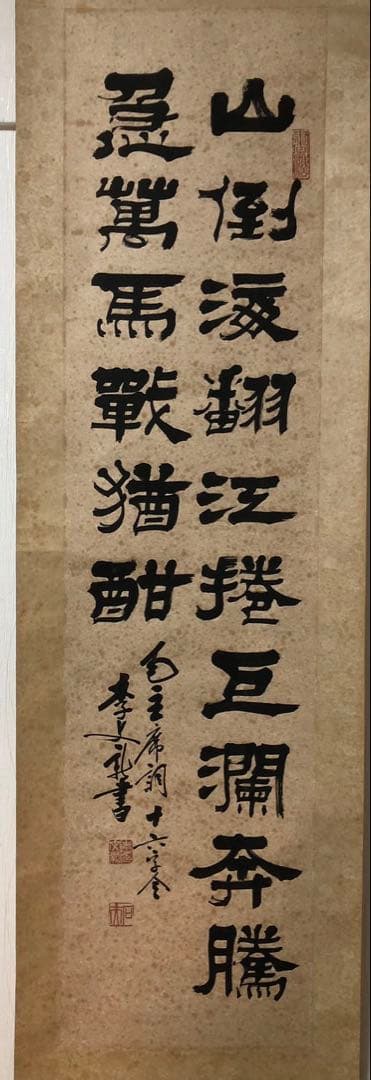 山倒海翻江捲巨瀾奔騰
急萬馬戰猶酣
毛主席詞十六字令
李文新書